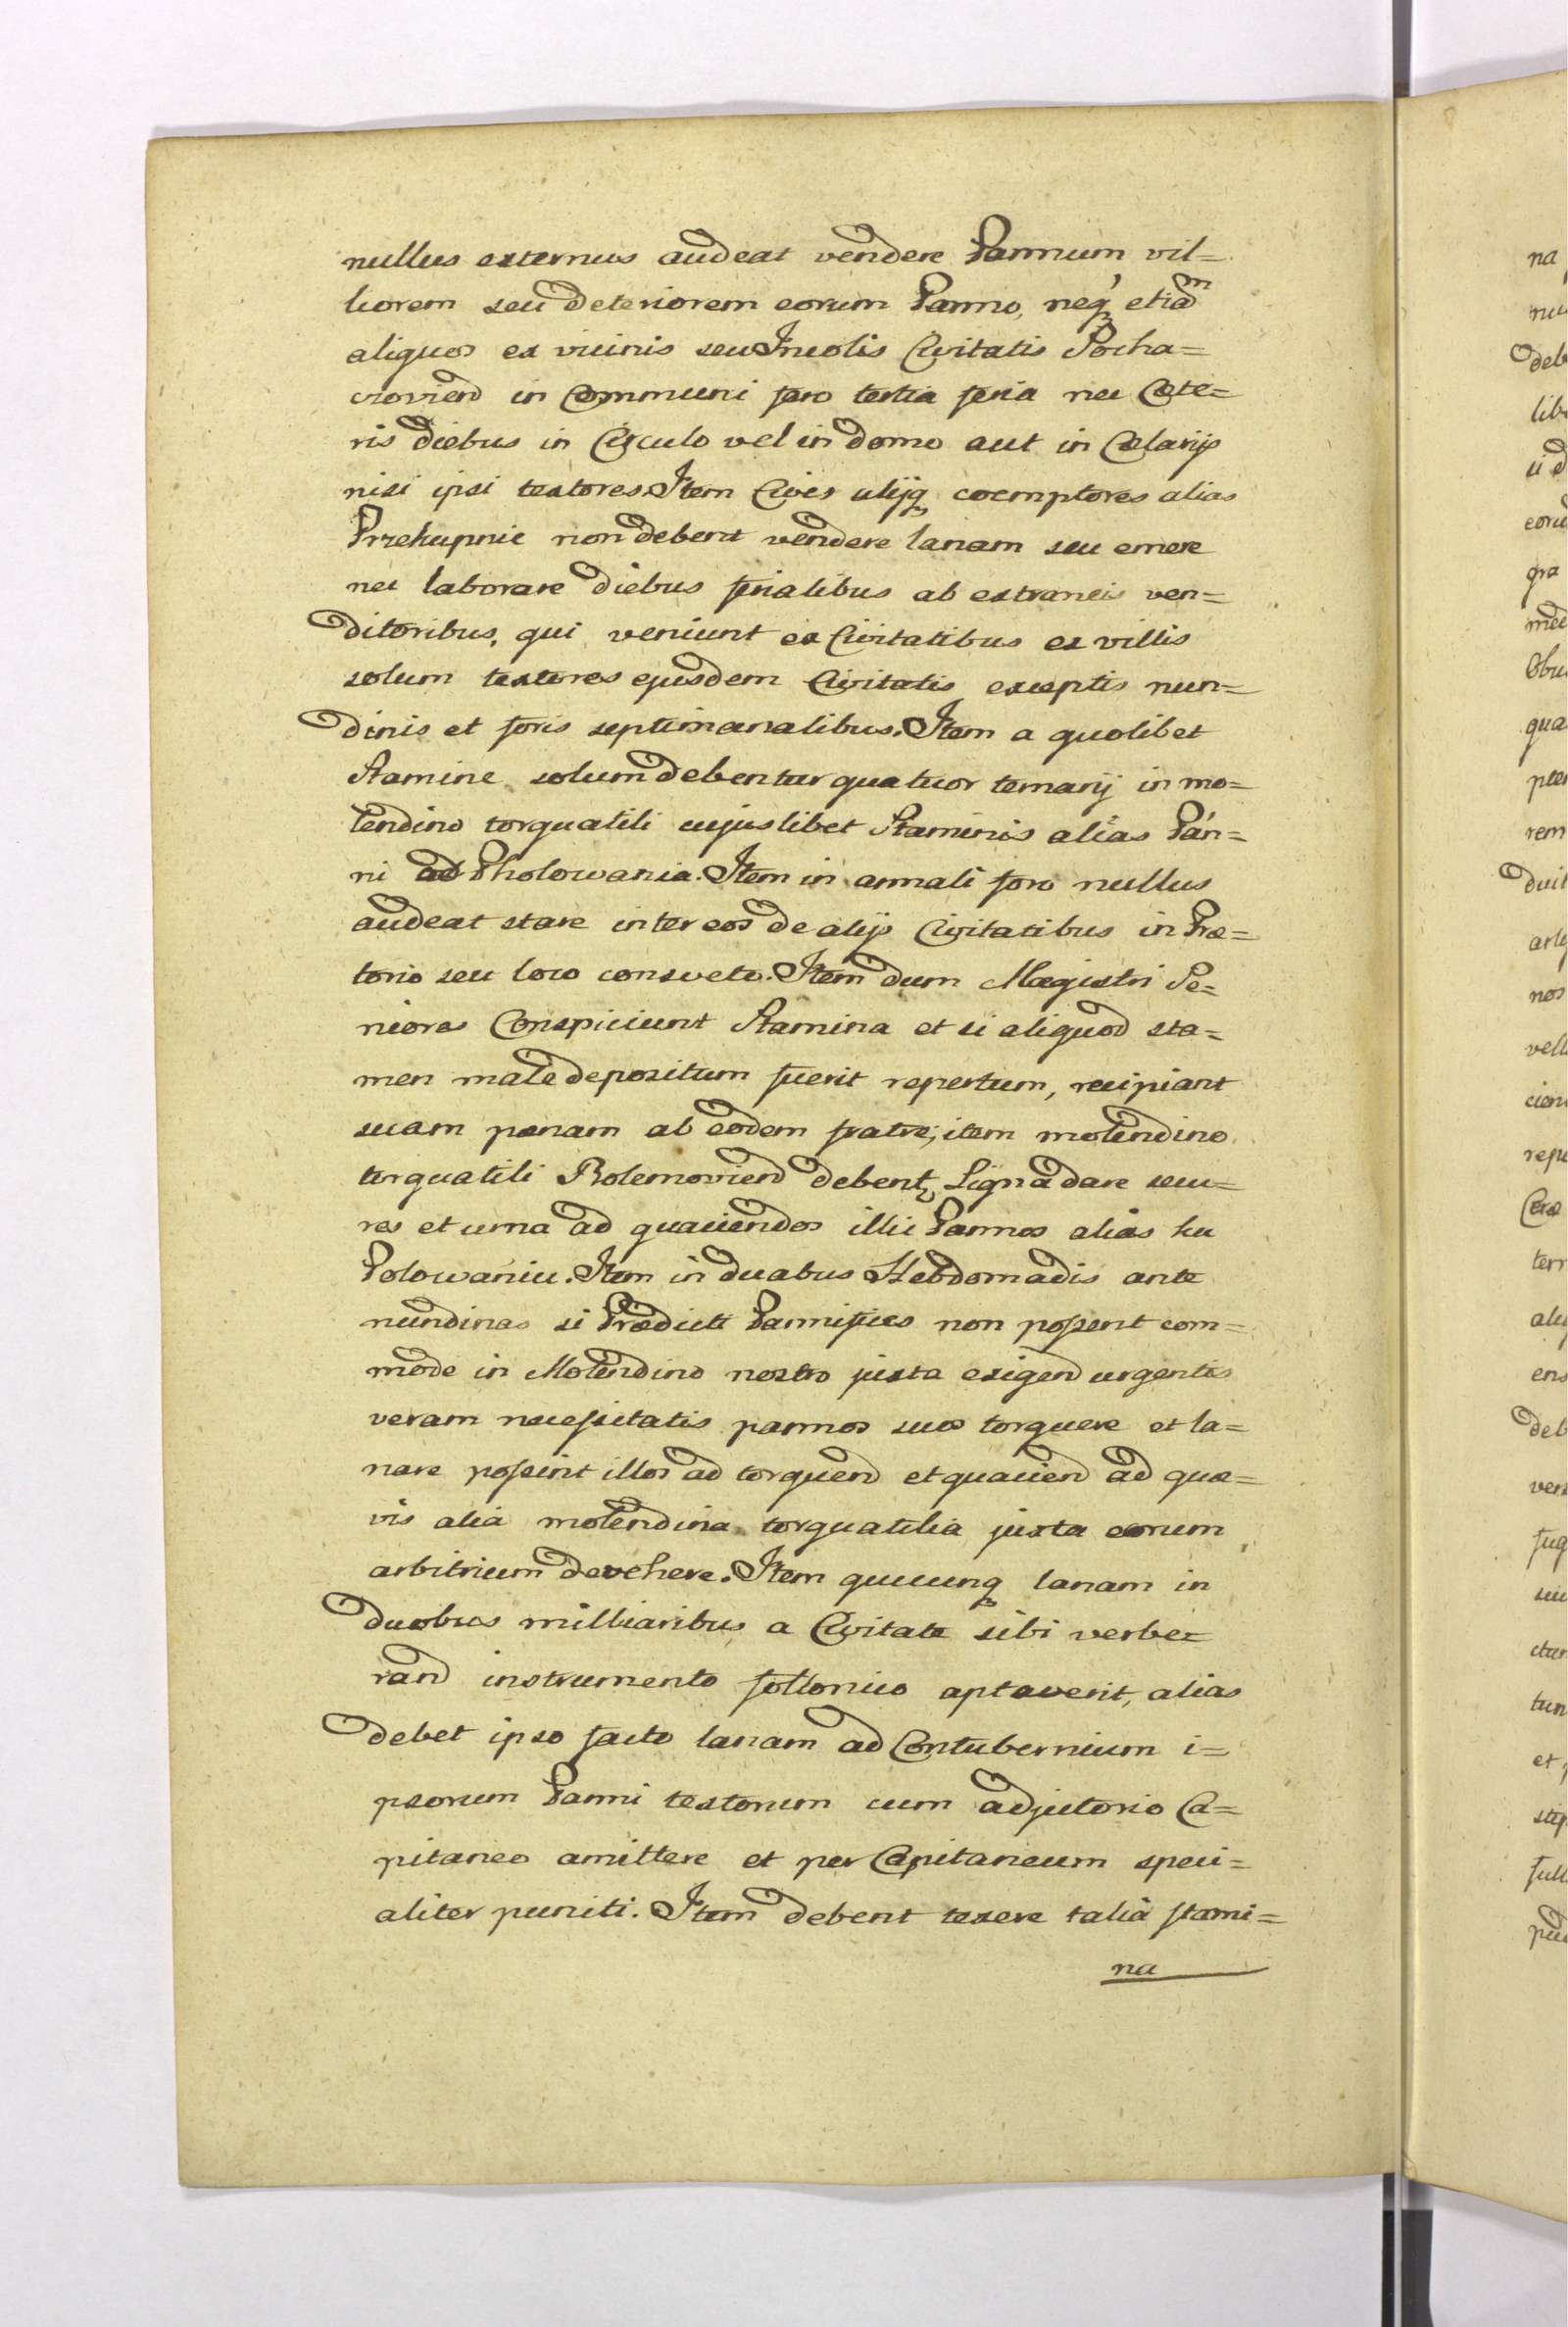 nullus externus audeat vendere Pannum vil=
liorem seu deteriorem eorum Panno, neq; etiam
aliquos ex vicinis seu Incolis Civitatis Socha=
czovien in Communi foro tertia feria nec Cæte=
ris diebus in Circulo vel in domo aut in Celarijs
nisi ipsi textores. Item Cives alijq; coemptores alias
Przekupnie non debent vendere lanam seu emere
nec laborare diebus ferialibus ab extraneis ven=
ditoribus, qui veniunt ex Civitatibus ex villis
solum textores ejusdem Civitatis exceptis nun=
dinis et foris septimanalibus. Item a quolibet
Stamine solum debentur quatuor ternarij in mo=
lendino torquatili cujuslibet Staminis alias Pan=
ni ad Pholowania. Item in annali foro nullus
audeat stare inter eos de alijs Civitatibus in Præ=
torio seu loco consveto. Item dum Magistri Se=
niores Conspiciunt Stamina et si aliquod sta=
men male depositum fuerit repertum, recipiant
suam pænam ab eodem fratre; item molendino
torquatili Rolemovien debent, Ligna dare secu=
res et urna ad quaciendos illic Pannos alias ku
Polowaniu. Item in duabus Hebdomadis ante
nundinas si Prædicti Pannifices non possent com=
mode in Molendino nostro juxta exigen urgentis
veram necessitatis pannos suos torquere et la=
nare possint illos ad torquen et quacien ad quæ=
vis alia molendina torquatilia juxta eorum
arbitrium devehere. Item quicunq; lanam in
duobus milliaribus a Civitate sibi verbe=
ran instrumento follonico aptaverit, alias
debet ipso facto lanam ad Contubernium i=
psorum Panni textorum cum adjutorio Ca=
pitaneo amittere et per Capitaneum speci=
aliter puniti. Item debent texere talia stami=
na